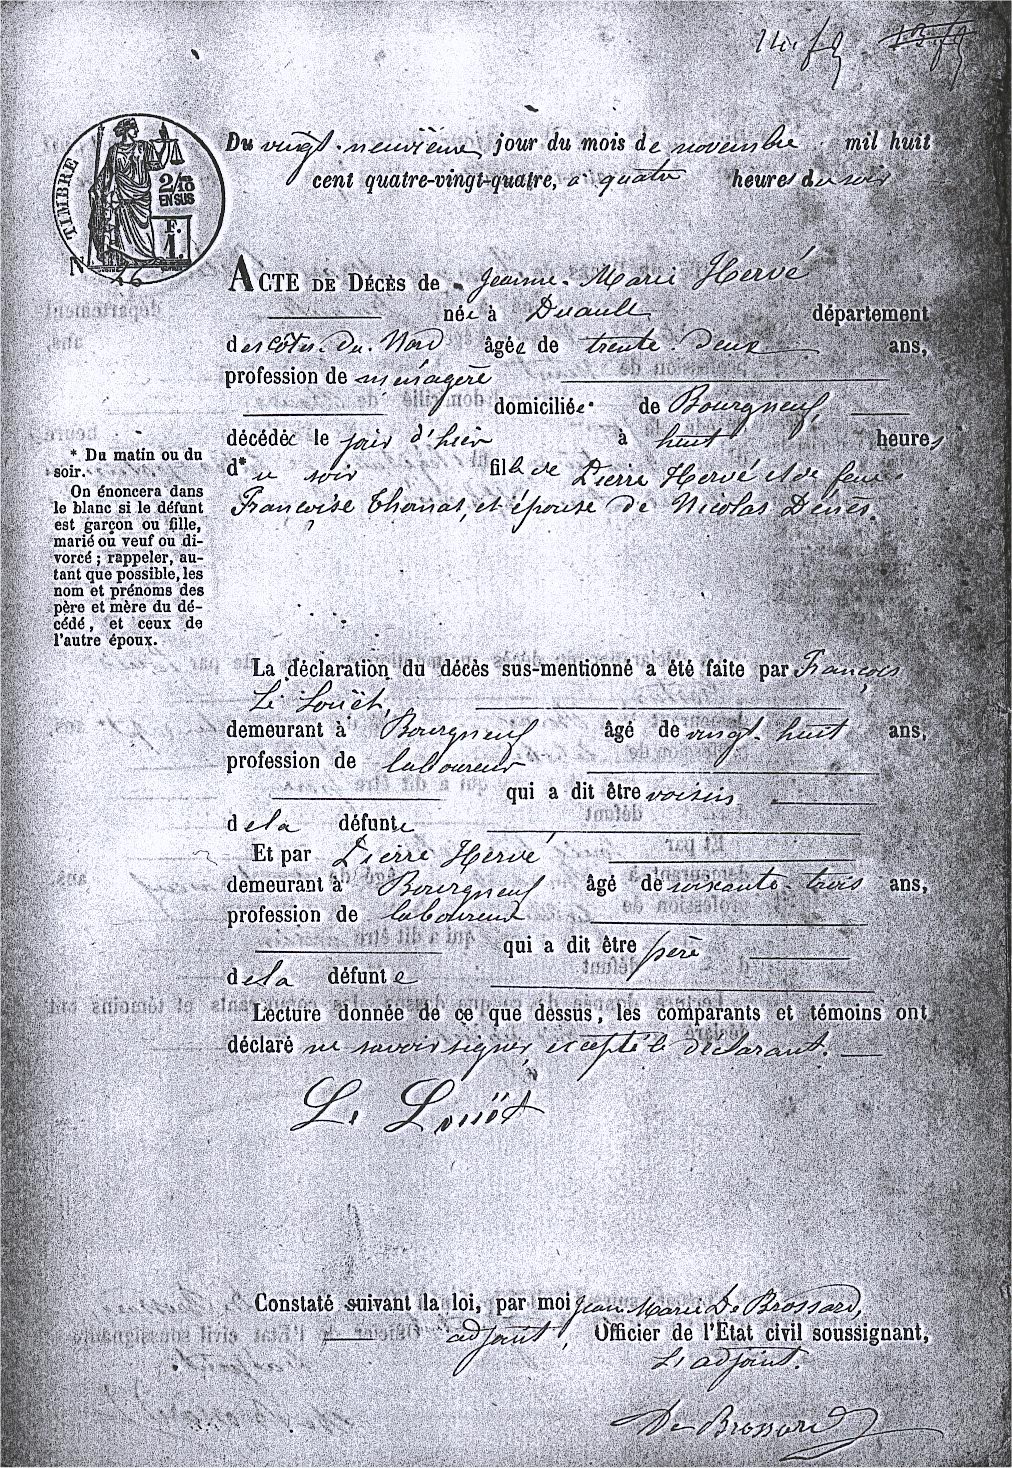 14. fo
TIMBRE
2/10
EN SUS
F.
1.
Du vingt-neuvième jour du mois de novembre mil huit
cent quatre-vingt-quatre, à quatre heures du soir
N 46
ACTE DE DÉCÈS de Jeanne-Marie Hervé
née à Duault département
des côtes-du-Nord âgée de trente-deux ans,
profession de ménagère
domiciliée de Bourgneuf,
décédée le jour d'hier à huit heures
d* u soir fille de Pierre Hervé et de feue
Françoise Thomas, et épouse de Nicolas Dénès.
* Du matin ou du
soir.
On énoncera dans
le blanc si le défunt
est garçon ou fille,
marié ou veuf ou di-
vorcé ; rappeler, au-
tant que possible, les
nom et prénoms des
père et mère du dé-
cédé, et ceux de
l'autre époux.
La déclaration du décès sus-mentionné a été faite par François
Le Louët,
demeurant à Bourgneuf âgé de vingt-huit ans,
profession de laboureur
qui a dit être voisin
de la défunte
Et par Pierre Hervé
demeurant à Bourgneuf âgé de soixante-trois ans,
profession de laboureur
qui a dit être père
de la défunte
Lecture donnée de ce que dessus, les comparants et témoins ont
déclaré ne savoir signer, excepté le déclarant.
Le Louët
Constaté suivant la loi, par moi Jean-Marie De Brossard,
adjoint, Officier de l'Etat civil soussignant,
L'adjoint.
De Brossard